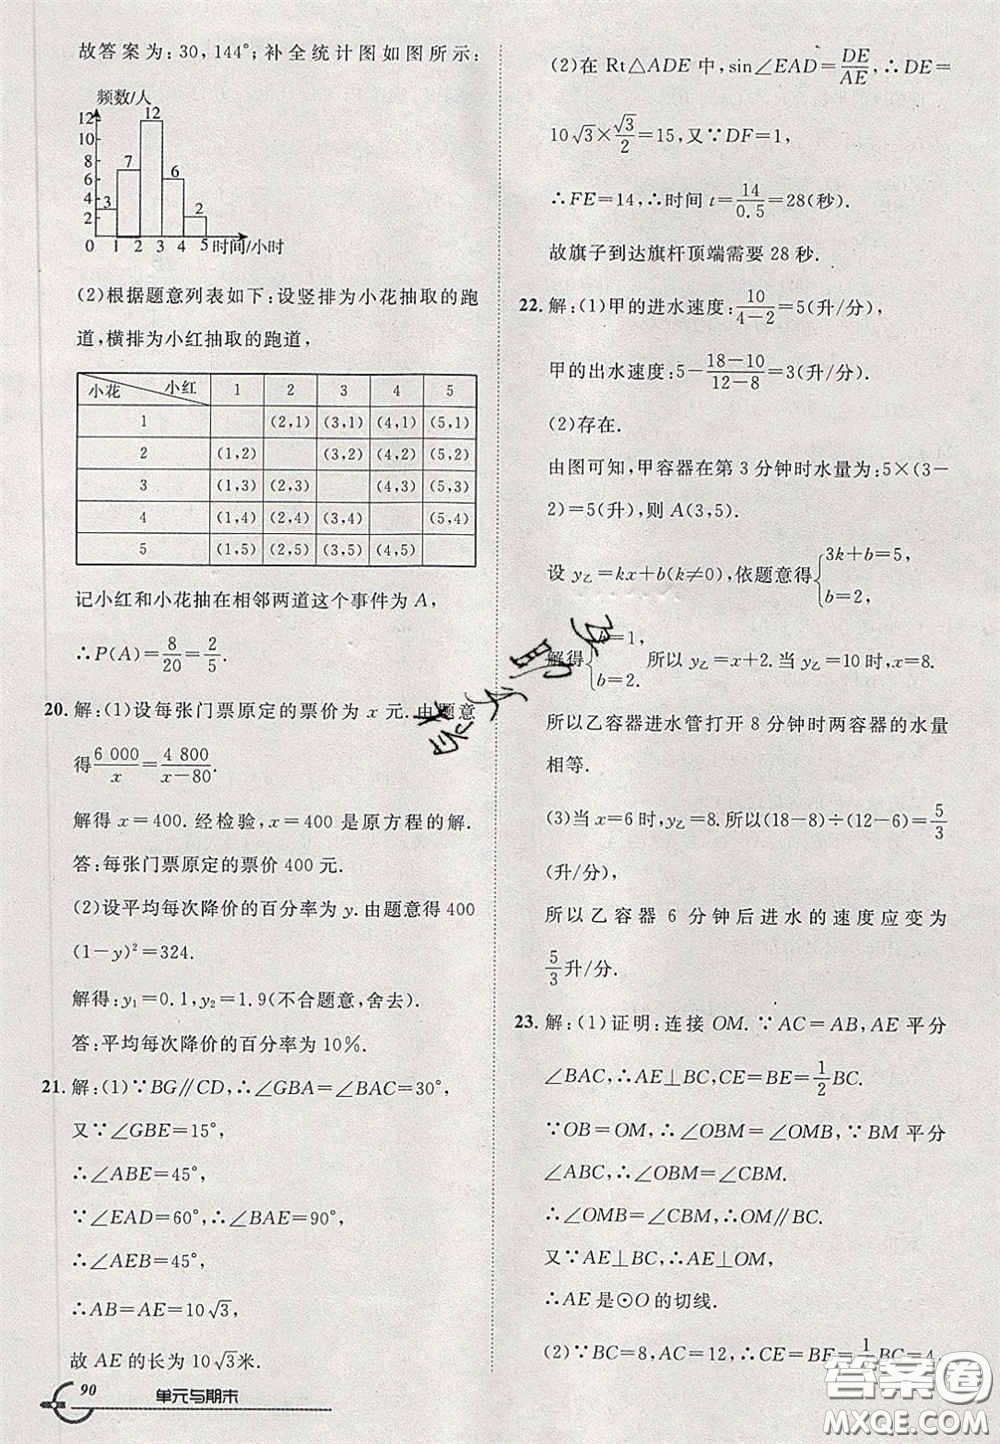 故答案为:30,144°;补全统计图如图所示:
频数/人
12
10
8
6
4
2
0
3
7
12
6
2
1 2 3 4 5 时间/小时
(2)根据题意列表如下:设竖排为小花抽取的跑
道,横排为小红抽取的跑道,
小花 小红 1 2 3 4 5
1 (2,1) (3,1) (4,1) (5,1)
2 (1,2) (3,2) (4,2) (5,2)
3 (1,3) (2,3) (4,3) (5,3)
4 (1,4) (2,4) (3,4) (5,4)
5 (1,5) (2,5) (3,5) (4,5)
记小红和小花抽在相邻两道这个事件为 A,
∴P(A)=8/20=2/5.
20. 解:(1)设每张门票原定的票价为 x 元.由题意
得6 000/x=4 800/(x-80).
解得 x=400. 经检验,x=400 是原方程的解.
答:每张门票原定的票价 400 元.
(2)设平均每次降价的百分率为 y.由题意得 400
(1-y)²=324.
解得:y₁=0.1,y₂=1.9(不合题意,舍去).
答:平均每次降价的百分率为 10%.
21. 解:(1)∵BG∥CD,∴∠GBA=∠BAC=30°,
又∵∠GBE=15°,
∴∠ABE=45°,
∵∠EAD=60°,∴∠BAE=90°,
∴∠AEB=45°,
∴AB=AE=10√3,
故 AE 的长为 10√3米.
90 单元与期末
(2)在 Rt△ADE 中,sin∠EAD=DE/AE,∴DE=
10√3×√3/2=15,又∵DF=1,
∴FE=14,∴时间 t=14/0.5=28(秒).
故旗子到达旗杆顶端需要 28 秒.
22. 解:(1)甲的进水速度:10/(4-2)=5(升/分),
甲的出水速度:5-(18-10)/(12-8)=3(升/分).
(2)存在.
由图可知,甲容器在第 3 分钟时水量为:5×(3-
2)=5(升),则 A(3,5).
设 y乙=kx+b(k≠0),依题意得{3k+b=5,
b=2.
解得{k=1,
b=2. 所以 y乙=x+2. 当 y乙=10 时,x=8.
所以乙容器进水管打开 8 分钟时两容器的水量
相等.
(3)当 x=6 时,y乙=8.所以(18-8)÷(12-6)=5/3
(升/分).
所以乙容器 6 分钟后进水的速度应变为
5/3升/分.
23. 解:(1)证明:连接 OM. ∵AC=AB,AE 平分
∠BAC,∴AE⊥BC,CE=BE=1/2BC.
∵OB=OM,∴∠OBM=∠OMB,∵BM 平分
∠ABC,∴∠OBM=∠CBM.
∴∠OMB=∠CBM,∴OM∥BC.
又∵AE⊥BC,∴AE⊥OM,
∴AE 是⊙O 的切线.
(2)∵BC=8,AC=12,∴CE=BE=1/2BC=4
答案圈
MXQE.COM